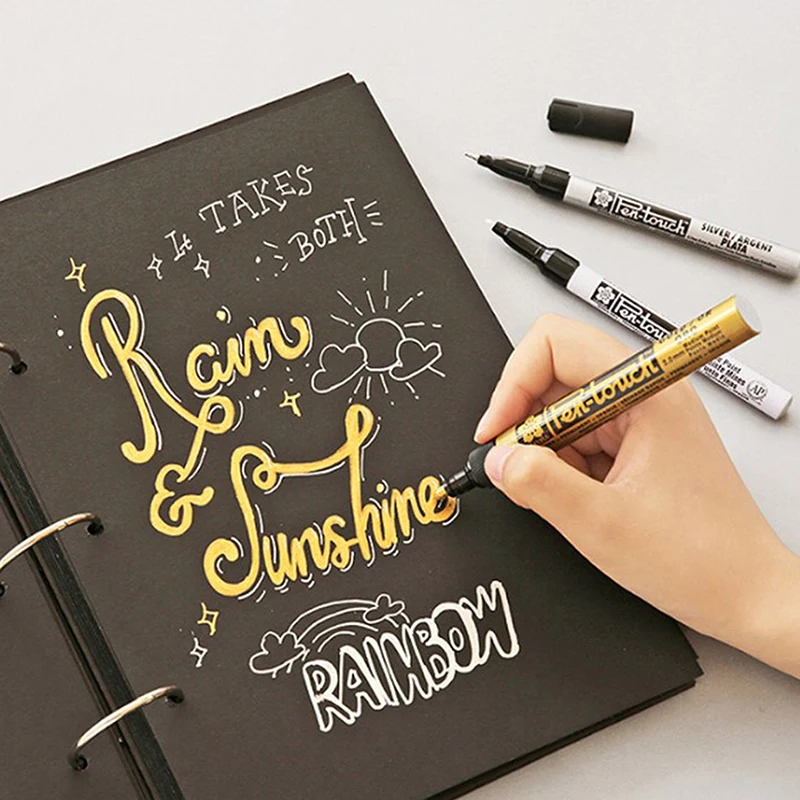 It TAKES
BOTH
Rain
&
Sunshine
RAINBOW
Pen-touch SILVER/ARGENT
PLATA
Pen-touch
Pen-touch
AP